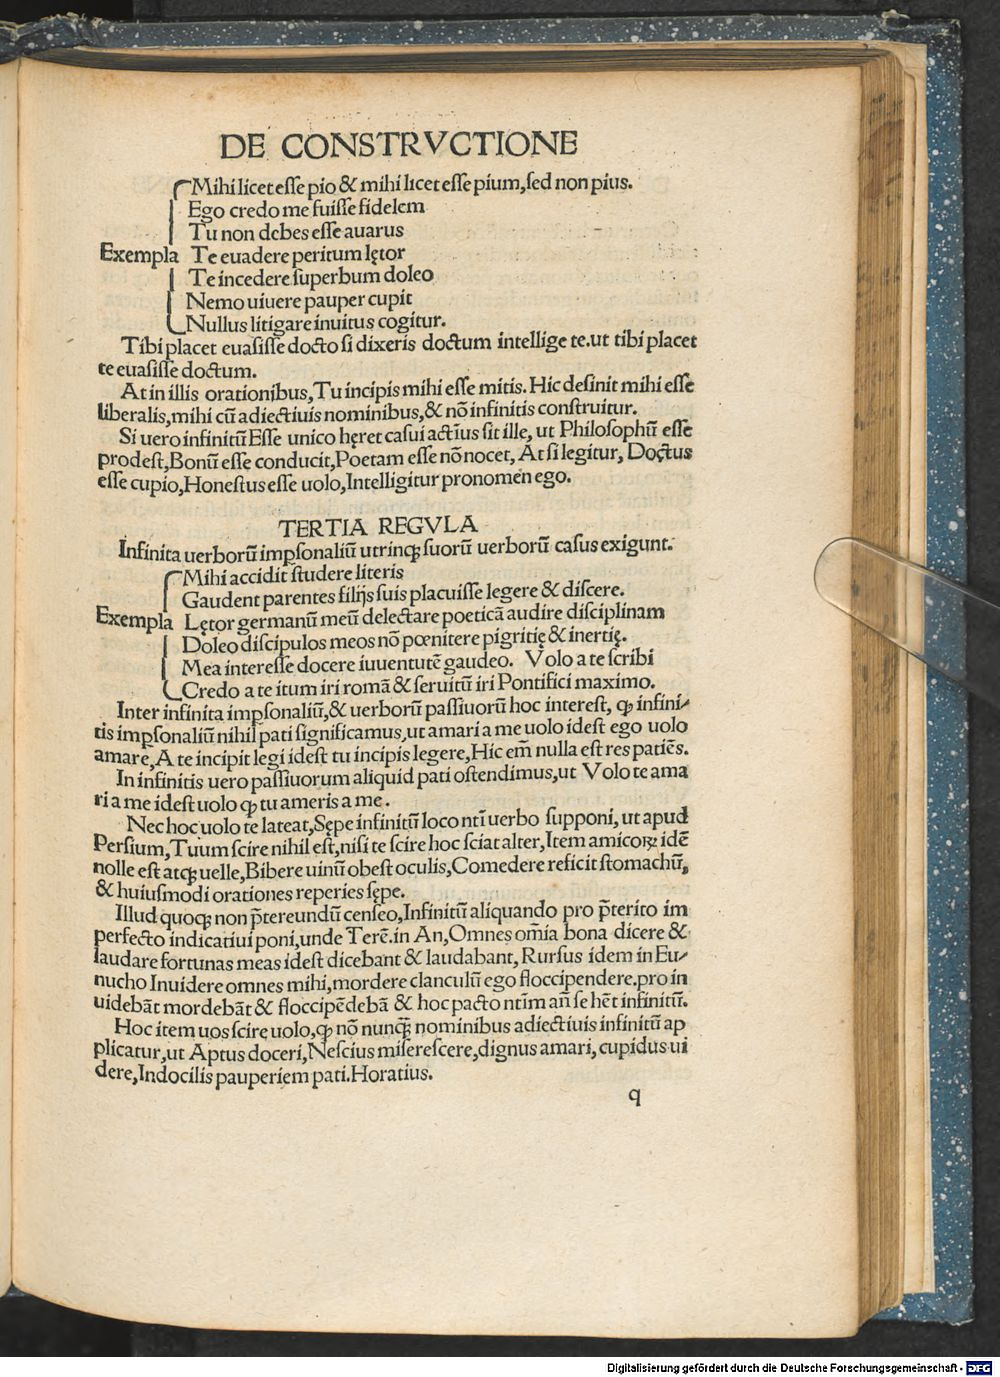 DE CONSTRVCTIONE
Mihi licet esse pio & mihi licet esse pium, sed non pius.
Ego credo me fuisse fidelem
Tu non debes esse auarus
Exempla Te euadere peritum lętor
Te incedere superbum doleo
Nemo uiuere pauper cupit
Nullus litigare inuitus cogitur.
Tibi placet euasisse docto si dixeris doctum intellige te.ut tibi placet
te euasisse doctum.
At in illis orationibus, Tu incipis mihi esse mitis. Hic desinit mihi esse
liberalis, mihi cū adiectiuis nominibus, & nō infinitis construitur.
Si uero infinitū Esse unico hęret casui actīus sit ille, ut Philosophū esse
prodest, Bonū esse conducit, Poetam esse nō nocet, At si legitur, Doctus
esse cupio, Honestus esse uolo, Intelligitur pronomen ego.
TERTIA REGVLA
Infinita uerborū imꝑsonaliū utrinqꝫ suorū uerborū casus exigunt.
Mihi accidit studere literis
Gaudent parentes filijs suis placuisse legere & discere.
Exempla Lętor germanū meū delectare poeticā audire disciplinam
Doleo discipulos meos nō pœnitere pigritię & inertię.
Mea interesse docere iuuentutē gaudeo. Volo a te scribi
Credo a te itum iri romā & seruitū iri Pontifici maximo.
Inter infinita imꝑsonaliū, & uerborū passiuorū hoc interest, ꝙ infini-
tis imꝑsonaliū nihil pati significamus, ut amari a me uolo idest ego uolo
amare, A te incipit legi idest tu incipis legere, Hic em̄ nulla est res patiēs.
In infinitis uero passiuorum aliquid pati ostendimus, ut Volo te ama
ri a me idest uolo ꝙ tu ameris a me.
Nec hoc uolo te lateat, Sępe infinitū loco ntī uerbo supponi, ut apud
Persium, Tuum scire nihil est, nisi te scire hoc sciat alter, Item amicoꝝ idē
nolle est atqꝫ uelle, Bibere uinū obest oculis, Comedere reficit stomachū,
& huiusmodi orationes reperies sępe.
Illud quoqꝫ non p̄tereundū censeo, Infinitū aliquando pro p̄terito im
perfecto indicatiui poni, unde Terē. in An, Omnes om̄ia bona dicere &
laudare fortunas meas idest dicebant & laudabant, Rursus idem in Eu-
nucho Inuidere omnes mihi, mordere clanculū ego floccipendere.pro in
uidebāt mordebāt & floccipēdebā & hoc pacto ntīm añ se hēt infinitū.
Hoc item uos scire uolo, ꝙ nō nunqꝫ̄ nominibus adiectiuis infinitū ap
plicatur, ut Aptus doceri, Nescius miserescere, dignus amari, cupidus ui
dere, Indocilis pauperiem pati. Horatius.
q
Digitalisierung gefördert durch die Deutsche Forschungsgemeinschaft - DFG